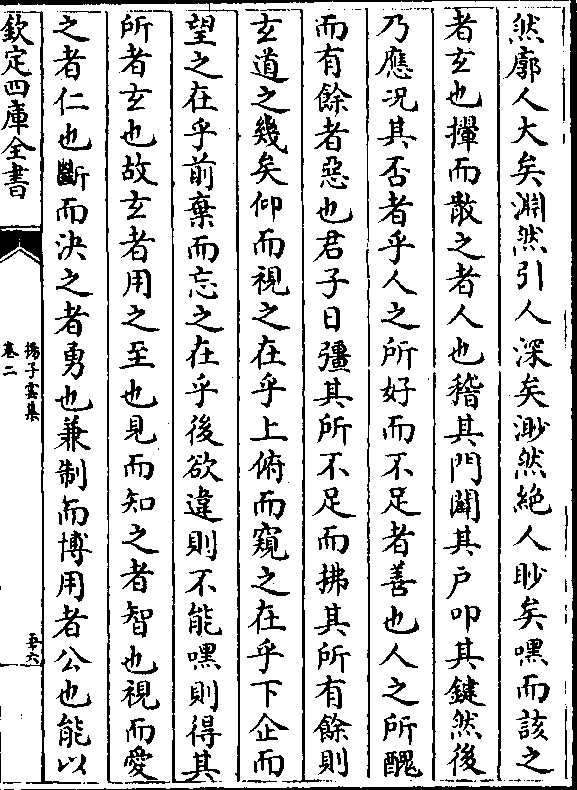 然廓人大矣淵然引人深矣渺然絕人眇矣嘿而該之
者玄也撣而散之者人也稽其門闢其戶叩其鍵然後
乃應况其否者乎人之所好而不足者善也人之所醜
而有餘者惡也君子日彊其所不足而拂其所有餘則
玄道之幾矣仰而視之在乎上俯而窺之在乎下企而
望之在乎前棄而忘之在乎後欲違則不能嘿則得其
所者玄也故玄者用之至也見而知之者智也視而愛
之者仁也斷而決之者勇也兼制而博用者公也能以
欽定四庫全書
揚子雲集
卷二
五十六